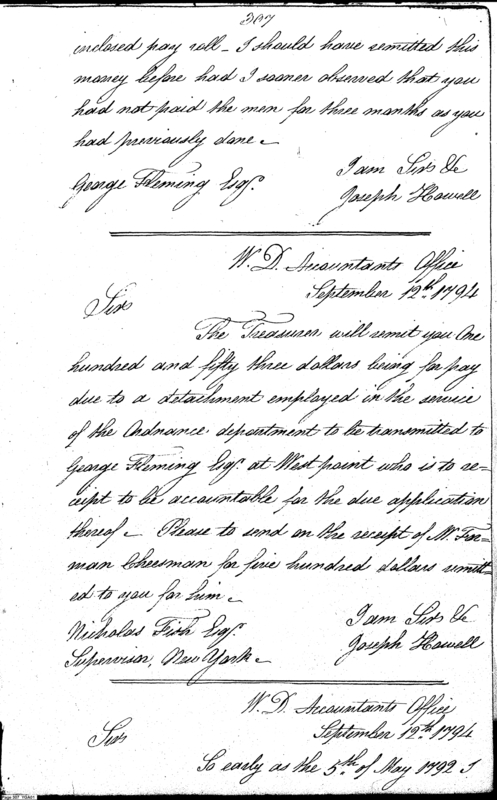 307
inclosed pay roll – I should have remitted this
money before had I sooner observed that you
had not paid the men for three months as you
had previously done –
I am Sir &c
George Fleming Esqr.
Joseph Howell
W. D. Accountants Office
September 12th. 1794
Sir
The Treasurer will remit you One
hundred and fifty three dollars being for pay
due to a detachment employed in the service
of the Ordnance department to be transmitted to
George Fleming Esqr. at West point who is to re=
ceipt to be accountable for the due application
thereof – Please to send on the receipt of Mr. For=
man Cheesman for five hundred dollars remitt=
ed to you for him –
I am Sir &c
Nicholas Fish Esqr.
Joseph Howell
Supervisor, New York –
W. D. Accountants Office
September 12th. 1794
Sir
So early as the 5th. of May 1792 I